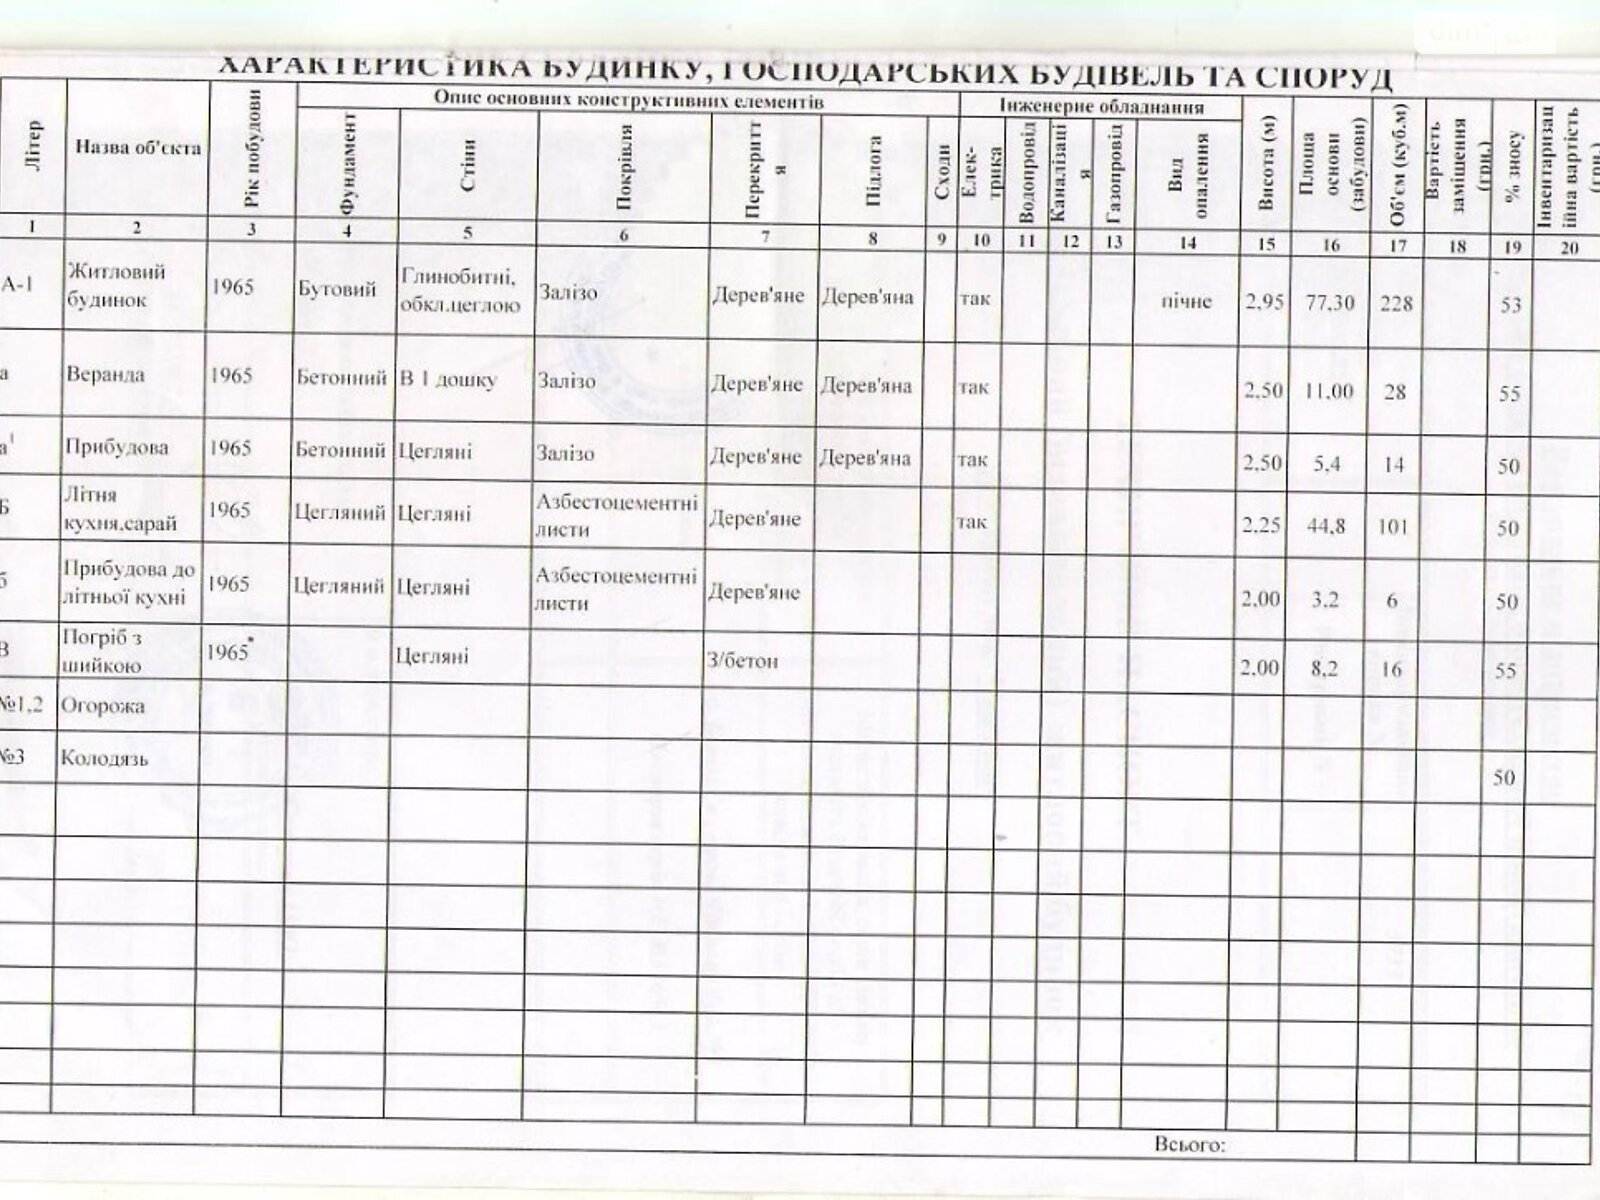 ХАРАКТЕРИСТИКА БУДИНКУ, ГОСПОДАРСЬКИХ БУДІВЕЛЬ ТА СПОРУД
Літер
Назва об'єкта
Рік побудови
Опис основних конструктивних елементів
Фундамент
Стіни
Покрівля
Перекритт
я
Підлога
Сходи
Інженерне обладнання
Елек-
трика
Водопровід
Каналізаці
я
Газопровід
Вид
опалення
Висота (м)
Площа
основи
(забудови)
Об'єм (куб.м)
Вартість
заміщення
(грн.)
% зносу
Інвентаризац
ійна вартість
(грн.)
1 2 3 4 5 6 7 8 9 10 11 12 13 14 15 16 17 18 19 20
А-1 Житловий будинок 1965 Бутовий Глинобитні, обкл.цеглою Залізо Дерев'яне Дерев'яна так пічне 2,95 77,30 228 53
а Веранда 1965 Бетонний В 1 дошку Залізо Дерев'яне Дерев'яна так 2,50 11,00 28 55
а¹ Прибудова 1965 Бетонний Цегляні Залізо Дерев'яне Дерев'яна так 2,50 5,4 14 50
Б Літня кухня,сарай 1965 Цегляний Цегляні Азбестоцементні листи Дерев'яне так 2,25 44,8 101 50
б Прибудова до літньої кухні 1965 Цегляний Цегляні Азбестоцементні листи Дерев'яне 2,00 3,2 6 50
В Погріб з шийкою 1965 Цегляні З/бетон 2,00 8,2 16 55
№1,2 Огорожа
№3 Колодязь 50
Всього: